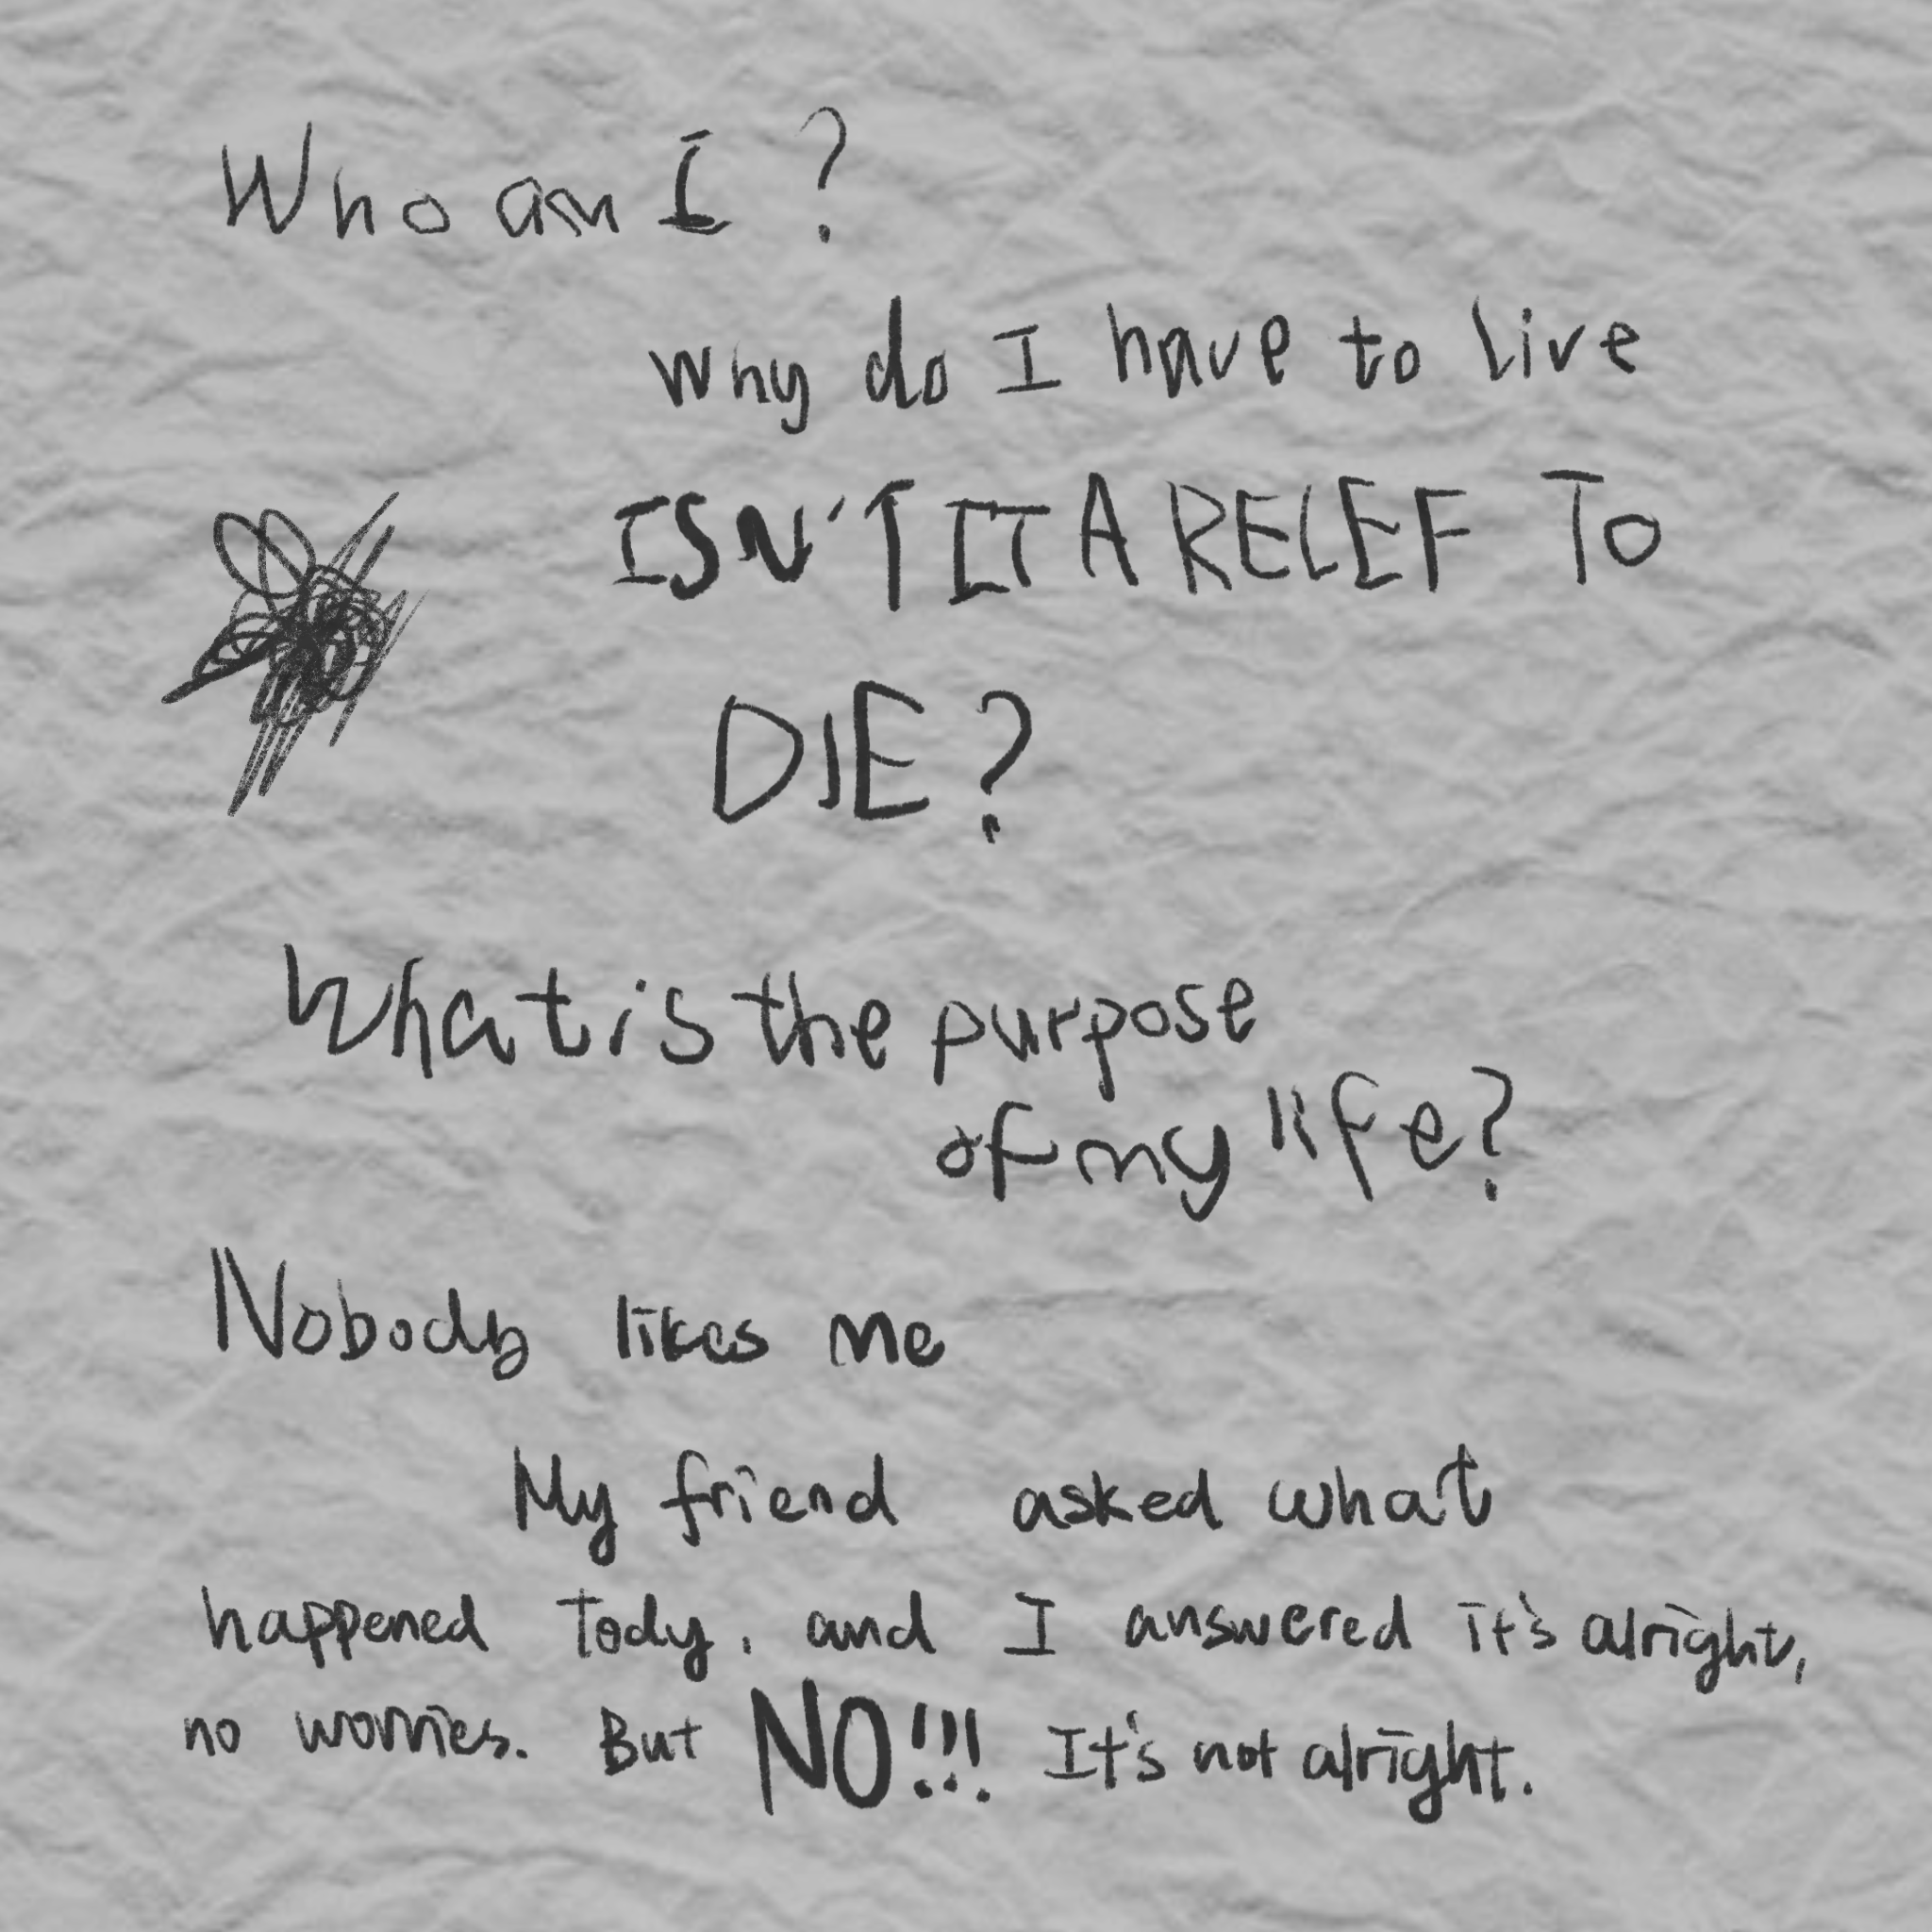 Who am I?
Why do I have to live
ISN'T IT A RELEF TO
DIE?
What is the purpose
of my life?
Nobody likes me
My friend asked what
happened tody, and I answered it's alright,
no worries. But NO!!! It's not alright.